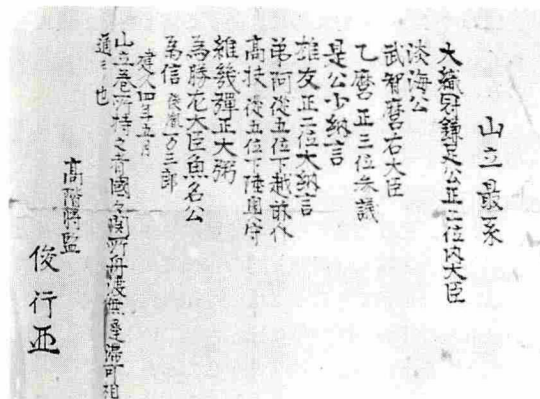 山立最系
大織冠鎌足公正二位内大臣
淡海公
武智麿右大臣
乙麿正三位参議
是公小納言
雄友正二位大納言
弟河従五位下越前介
高扶従五位下陸奥守
維幾弾正大弼
為勝左大臣魚名公
為信 後胤万三郎
建久四年五月
山立巻所持之者國々関所舟渡無遅滞可相
通者也
高階将監
俊行